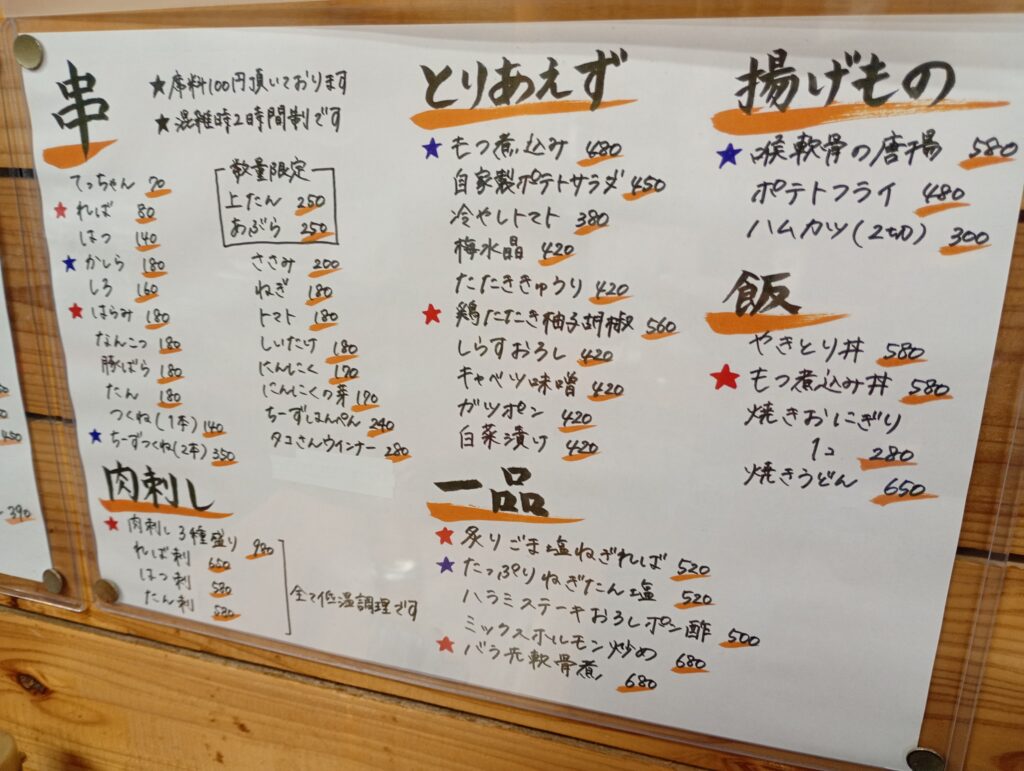 串
★席料100円頂いております
★混雑時2時間制です
てっちゃん 70
★れば 80
はつ 140
★かしら 180
しろ 160
★はらみ 180
なんこつ 180
豚ばら 180
たん 180
つくね(1本) 140
★ちーずつくね(2本) 350
数量限定
上たん 250
あぶら 250
ささみ 200
ねぎ 180
トマト 180
しいたけ 180
にんにく 170
にんにくの芽 190
ちーずはんぺん 240
タコさんウインナー 280
肉刺し
★肉刺し3種盛り 980
れば刺 650
はつ刺 580
たん刺 580
全て低温調理です
とりあえず
★もつ煮込み 480
自家製ポテトサラダ 450
冷やしトマト 380
梅水晶 420
たたききゅうり 420
★鶏たたき柚子胡椒 560
しらすおろし 420
キャベツ味噌 420
ガツポン 420
白菜漬け 420
一品
★炙りごま塩ねぎれば 520
★たっぷりねぎたん塩 520
ハラミステーキおろしポン酢 500
ミックスホルモン炒め 680
★バラ先軟骨煮 680
揚げもの
★喉軟骨の唐揚 580
ポテトフライ 480
ハムカツ(2切) 300
飯
やきとり丼 580
★もつ煮込み丼 580
焼きおにぎり
1コ 280
焼きうどん 650
450
390